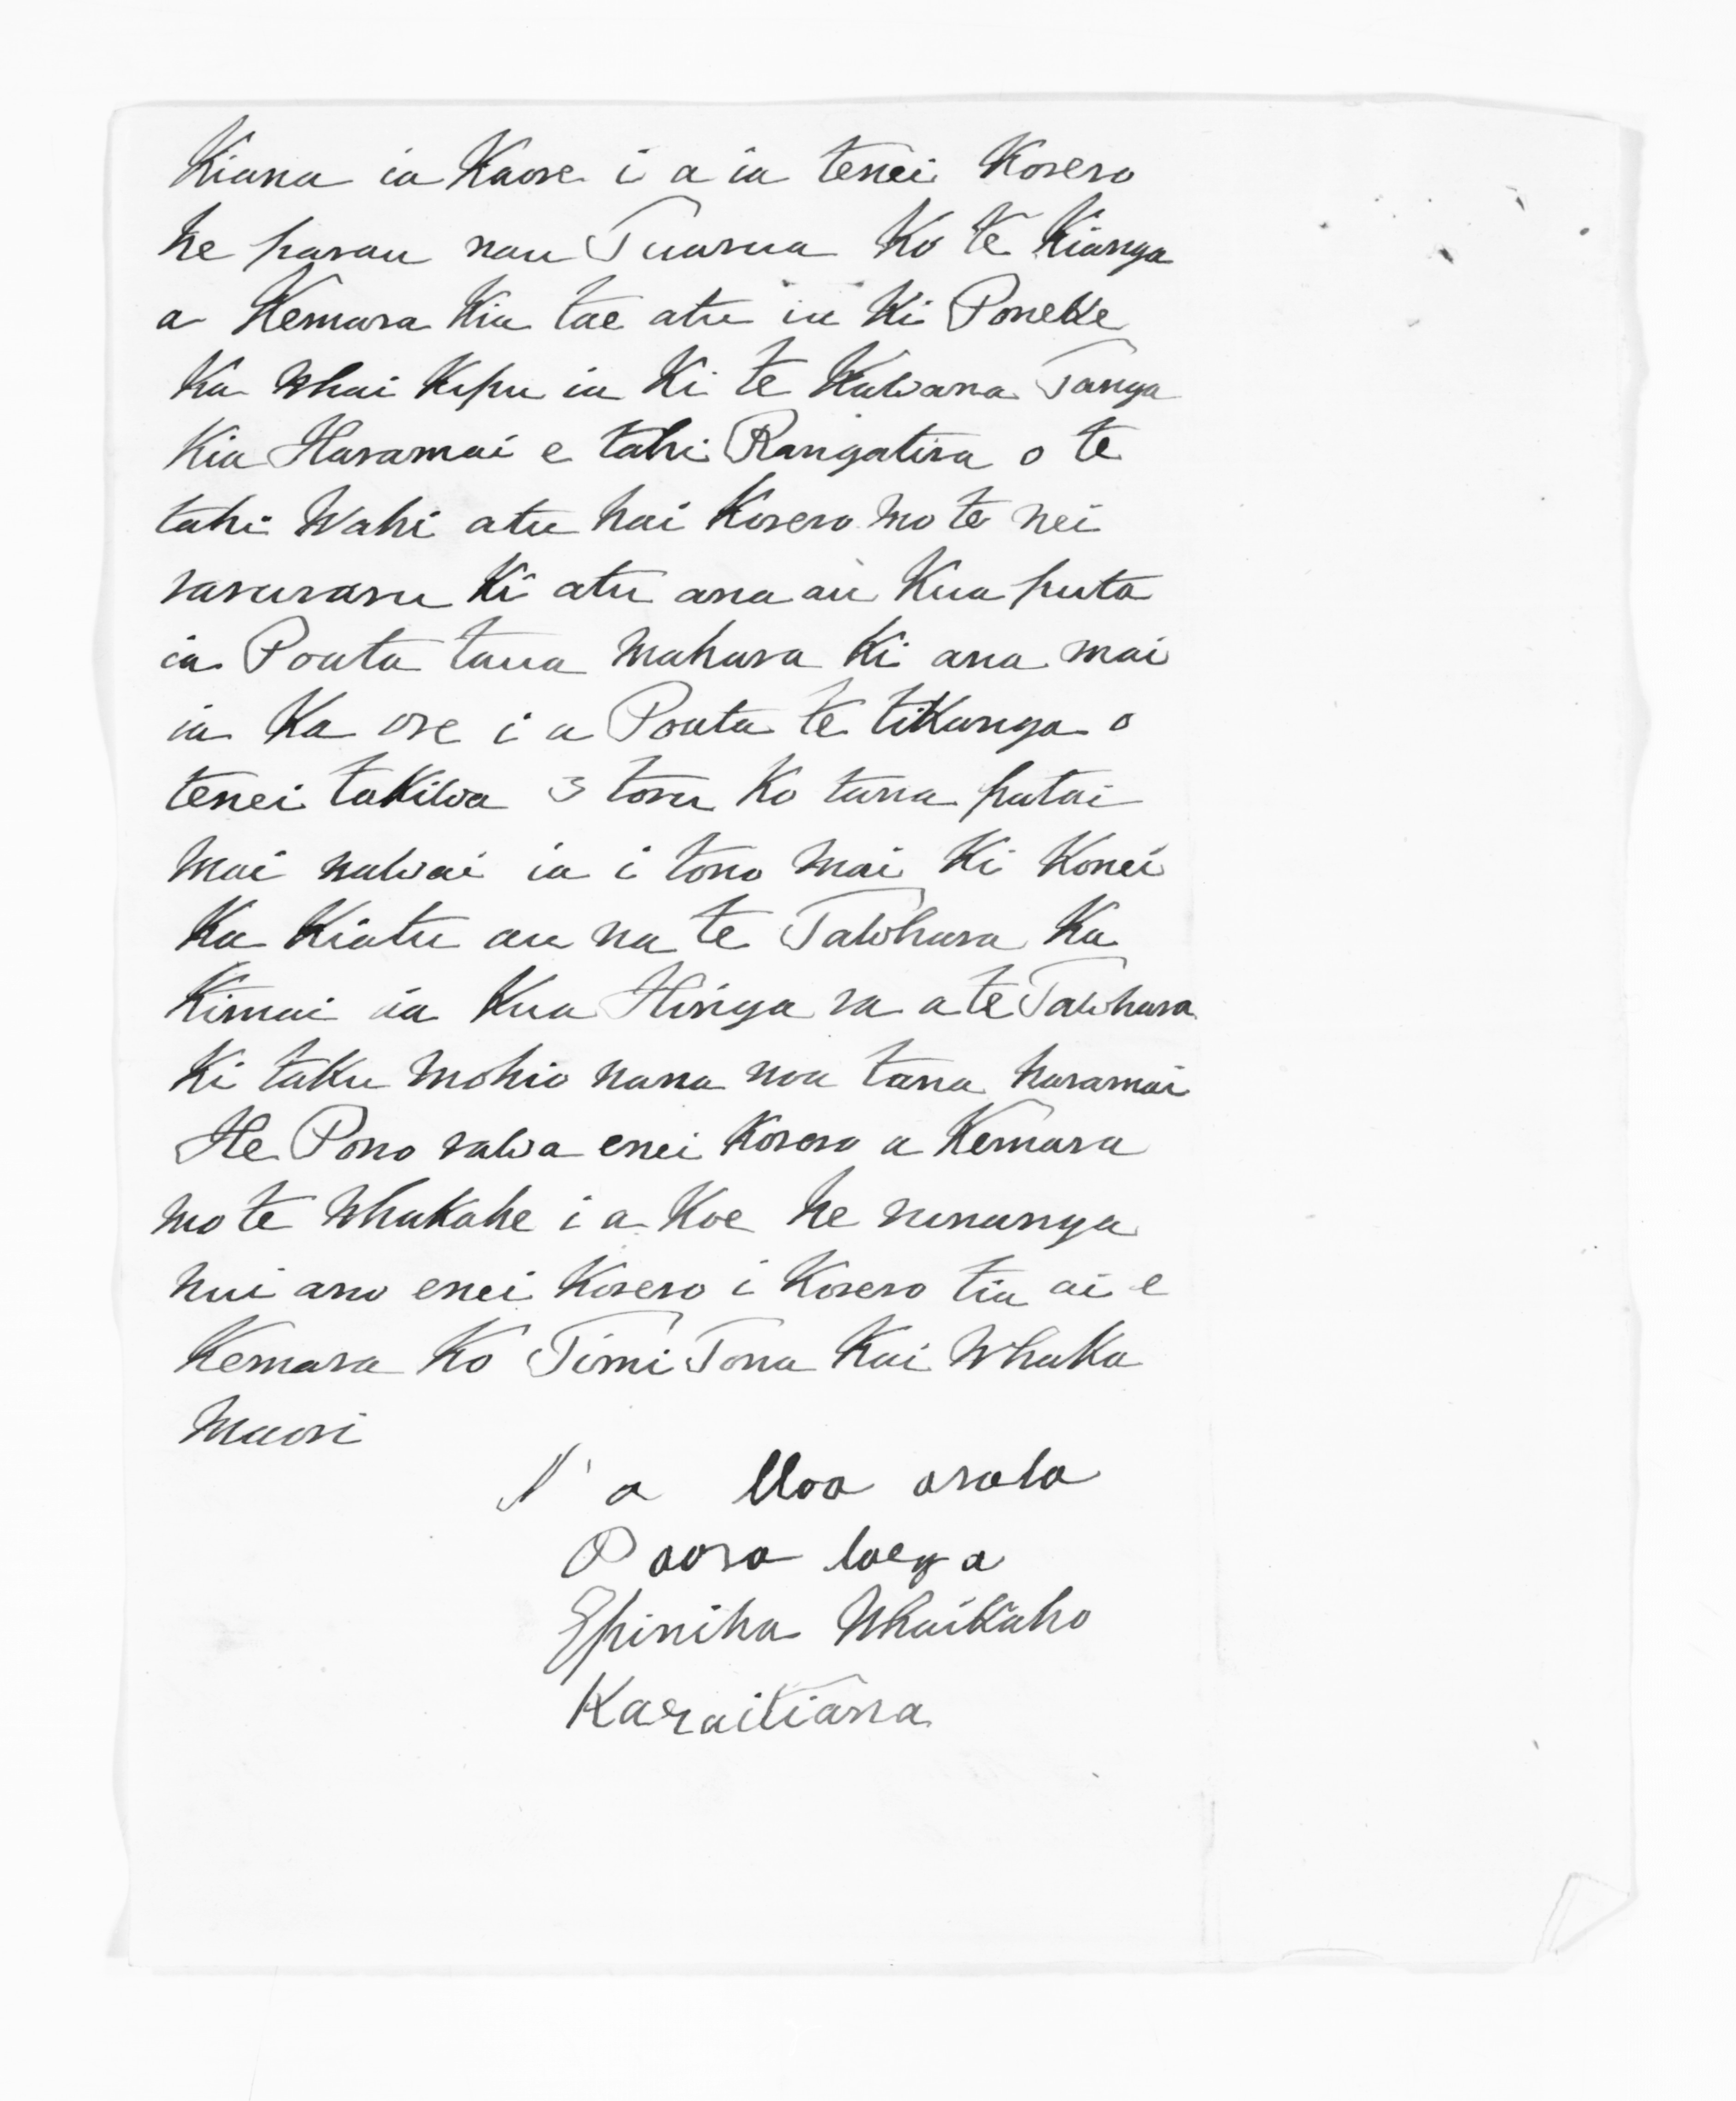 Kiana ia Kaore i a ia tenei Korero
he parau nau Tuarua Ko te Kianga
a Kemara Kia tae atu ia Ki Poneke
Ka Whai Kupu ia Ki te Kawana Tanga
Kia Haramai e tahi Rangatira o te
tahi Wahi atu hai Korero mo te nei
raruraru Ki atu ana au Kua puta
ia Pouta taua Mahara Ki ana mai
ia Ka ore i a Pouta te tikanga o
tenei takiwa 3 toru Ko tana patai
Mai nawai ia i tono Mai Ki Konei
Ka Kiatu au na te Tawhara Ka
Kimai ia Kua Hinga ra a te Tawhara
Ki taku Mohio nana noa tana haramai
He Pono rawa enei Korero a Kemara
mo te Whakahe i a Koe he runanga
nui ano enei Korero i Korero tia ai e
Kemara Ko Timi Tona Kai Whaka
Maori
Na
Paora
Epiniha Whaikaho
Karaitiana